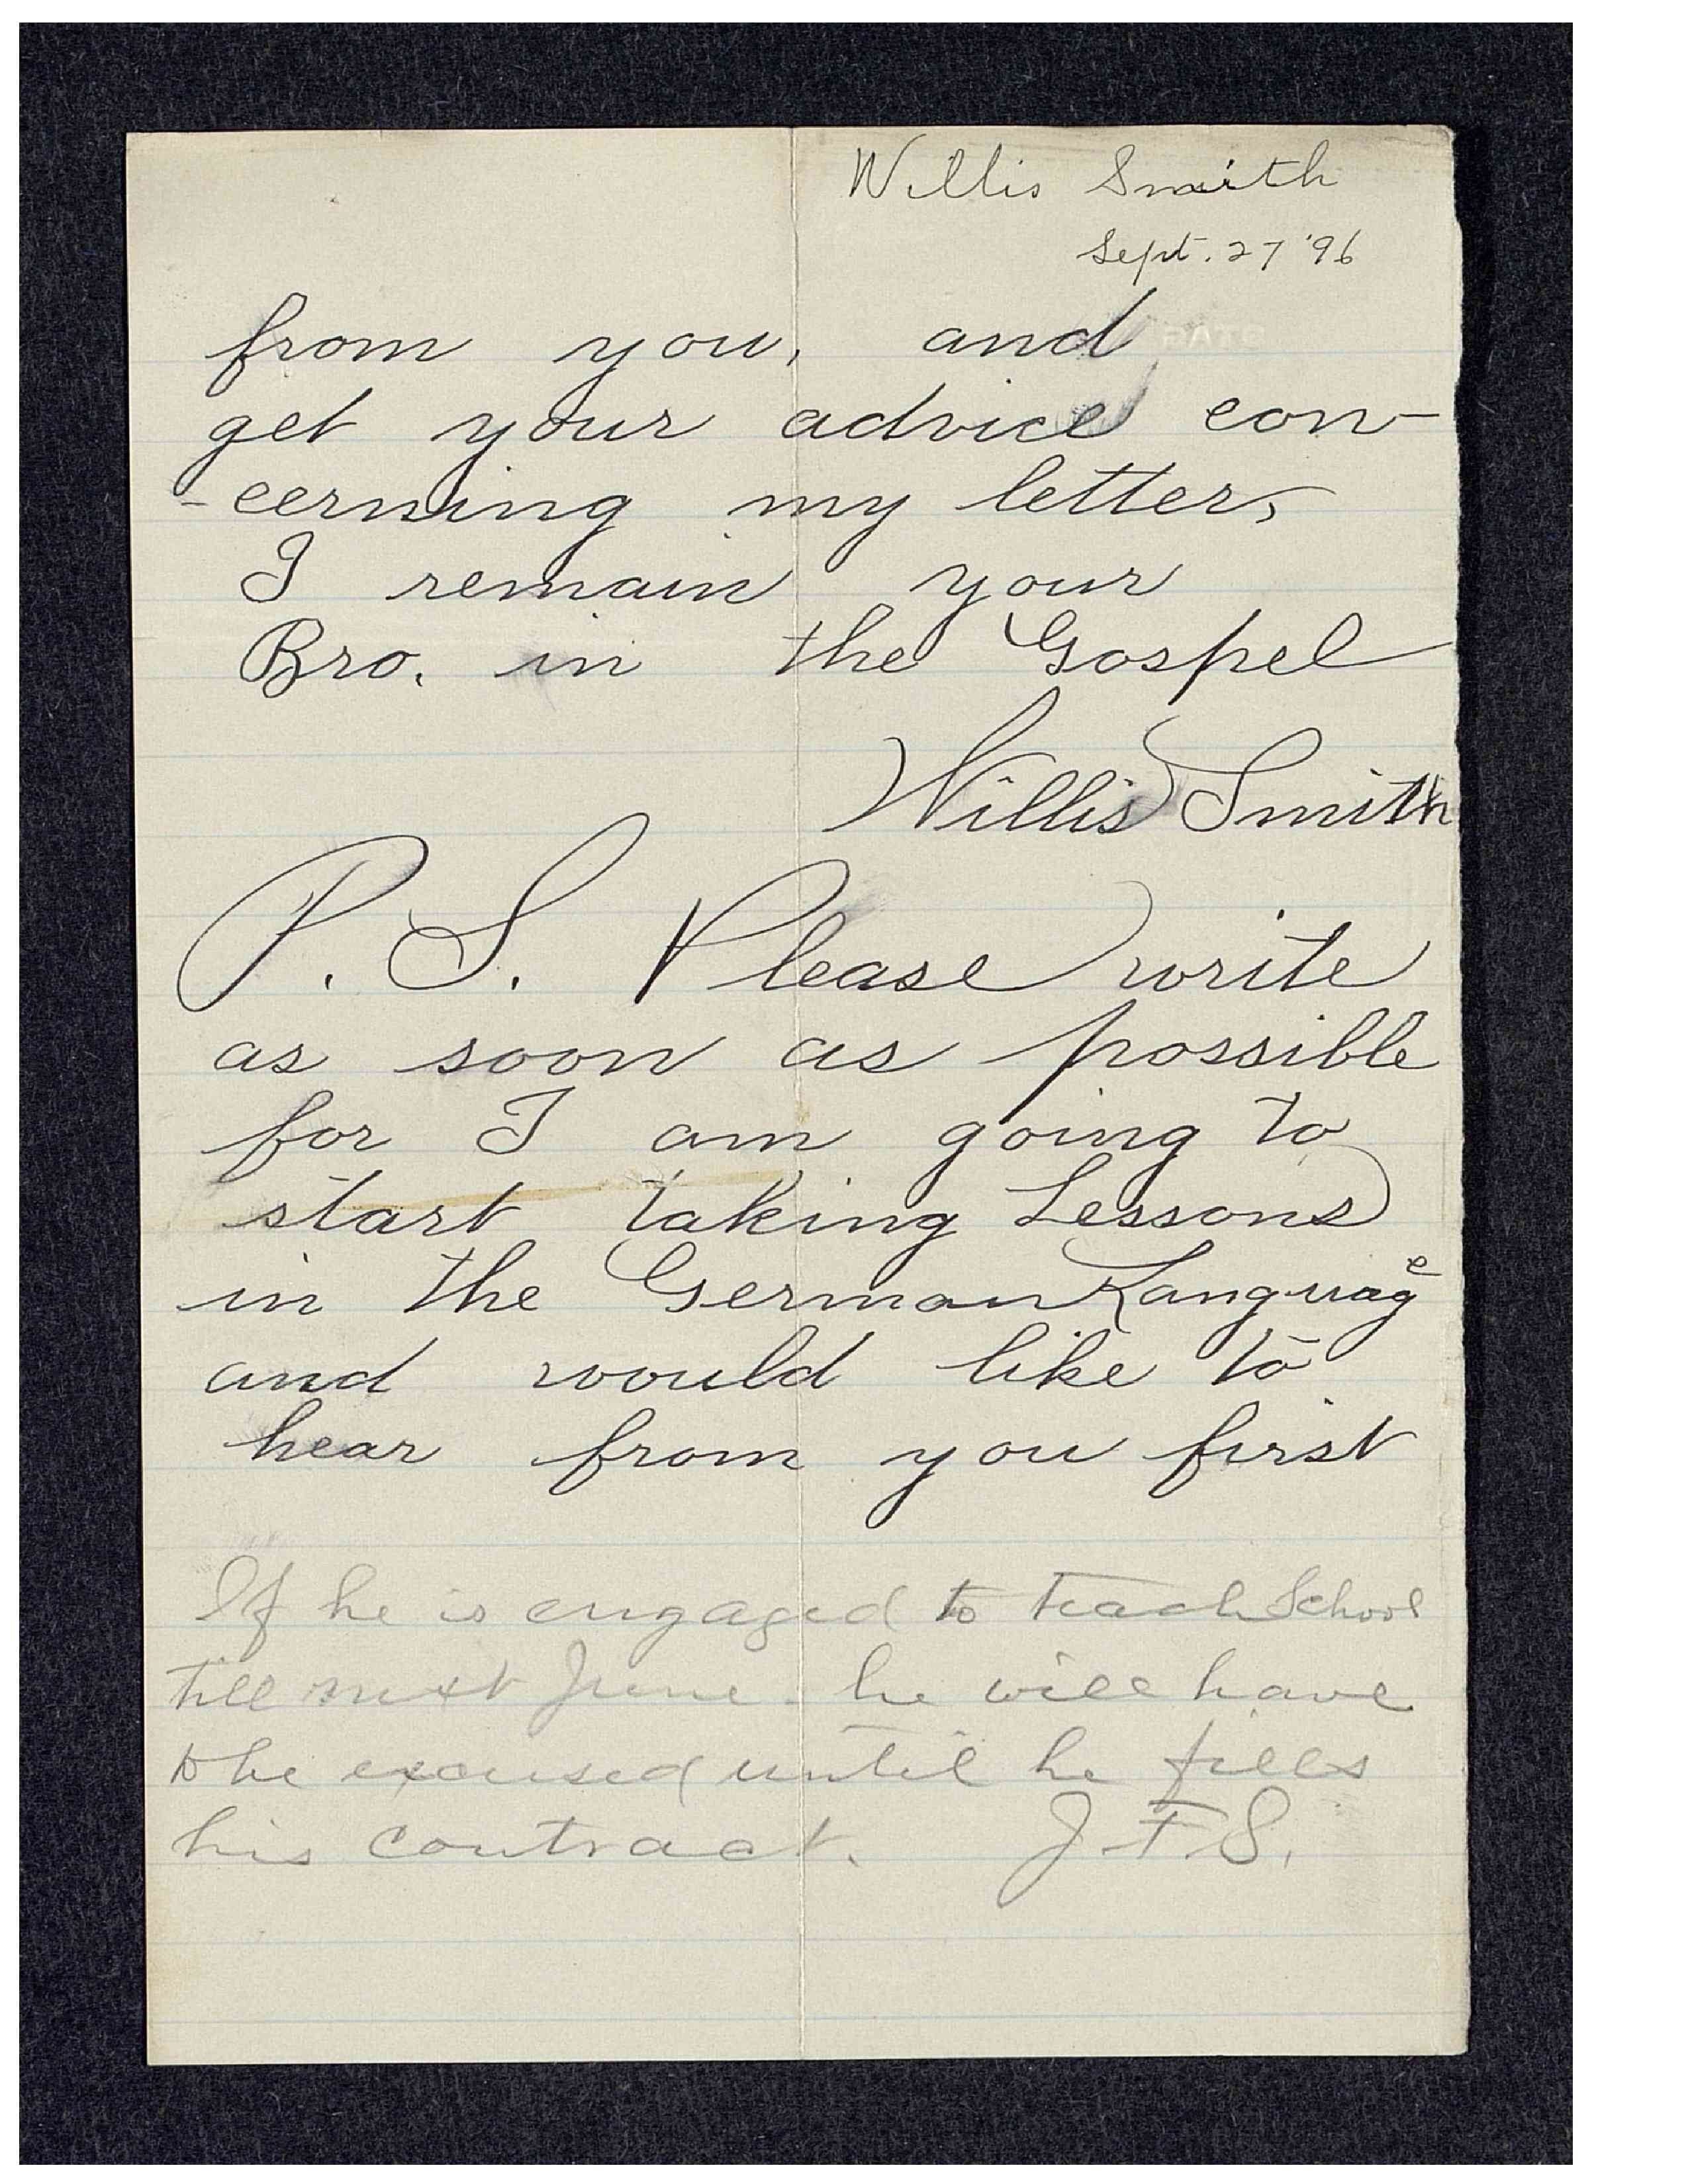 Willis Smith
Sept. 27 '96
from you, and
get your advice con-
-cerning my letter,
I remain your
Bro. in the Gospel
Willis Smith
P. S. Please write
as soon as possible
for I am going to
start taking Lessons
in the German Language
and would like to
hear from you first
If he is engaged to teach School
till next June - he will have
to be excused until he fills
his contract. J F S.